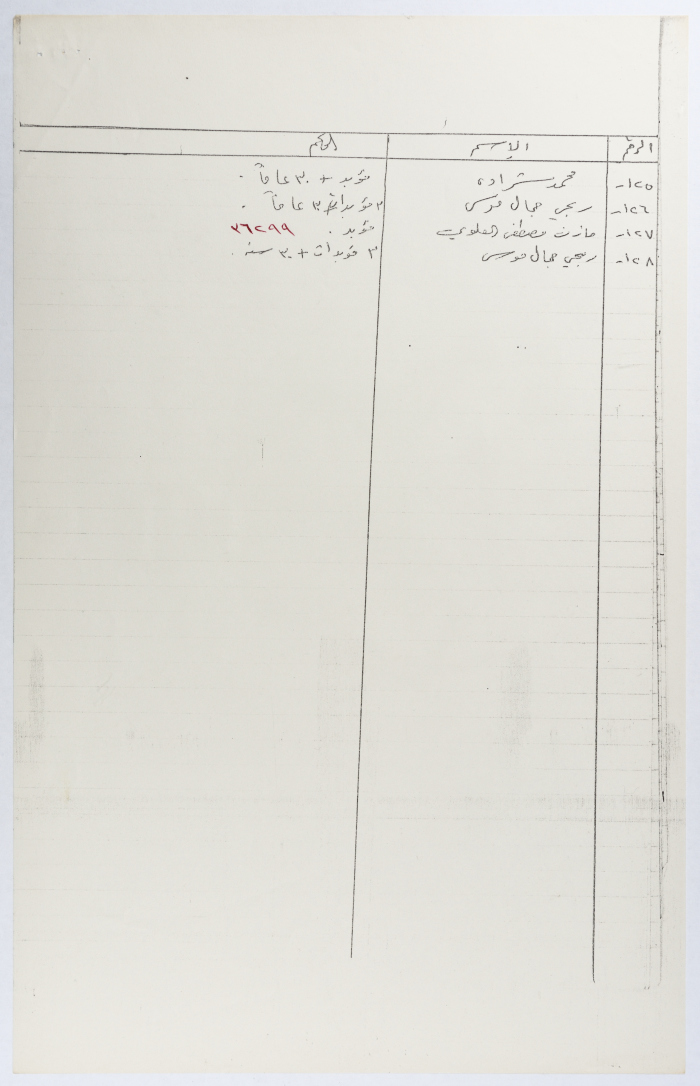 الرقم الإسم الحكم
١٢٥- محمد شراده مؤبد + ٣٠ عاماً.
١٢٦- ربحي جمال موسى ٣ مؤبدات + ٣٠ عاماً.
١٢٧- مازن مصطفى العلوي مؤبد. ٣٦٢٩٩
١٢٨- ربحي جمال موسى ٣ مؤبدات + ٣٠ سنة.